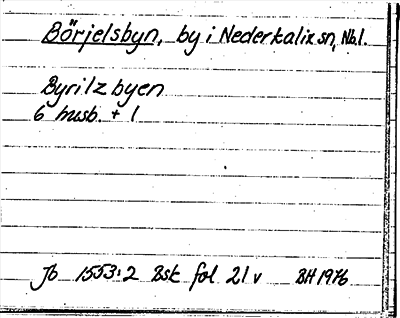 Börjelsbyn, by i Nederkalix sn, Nbl.
Byrilzbyen
6 husb. + 1
Jb 1553:2 Bsk fol 21v BH 1976